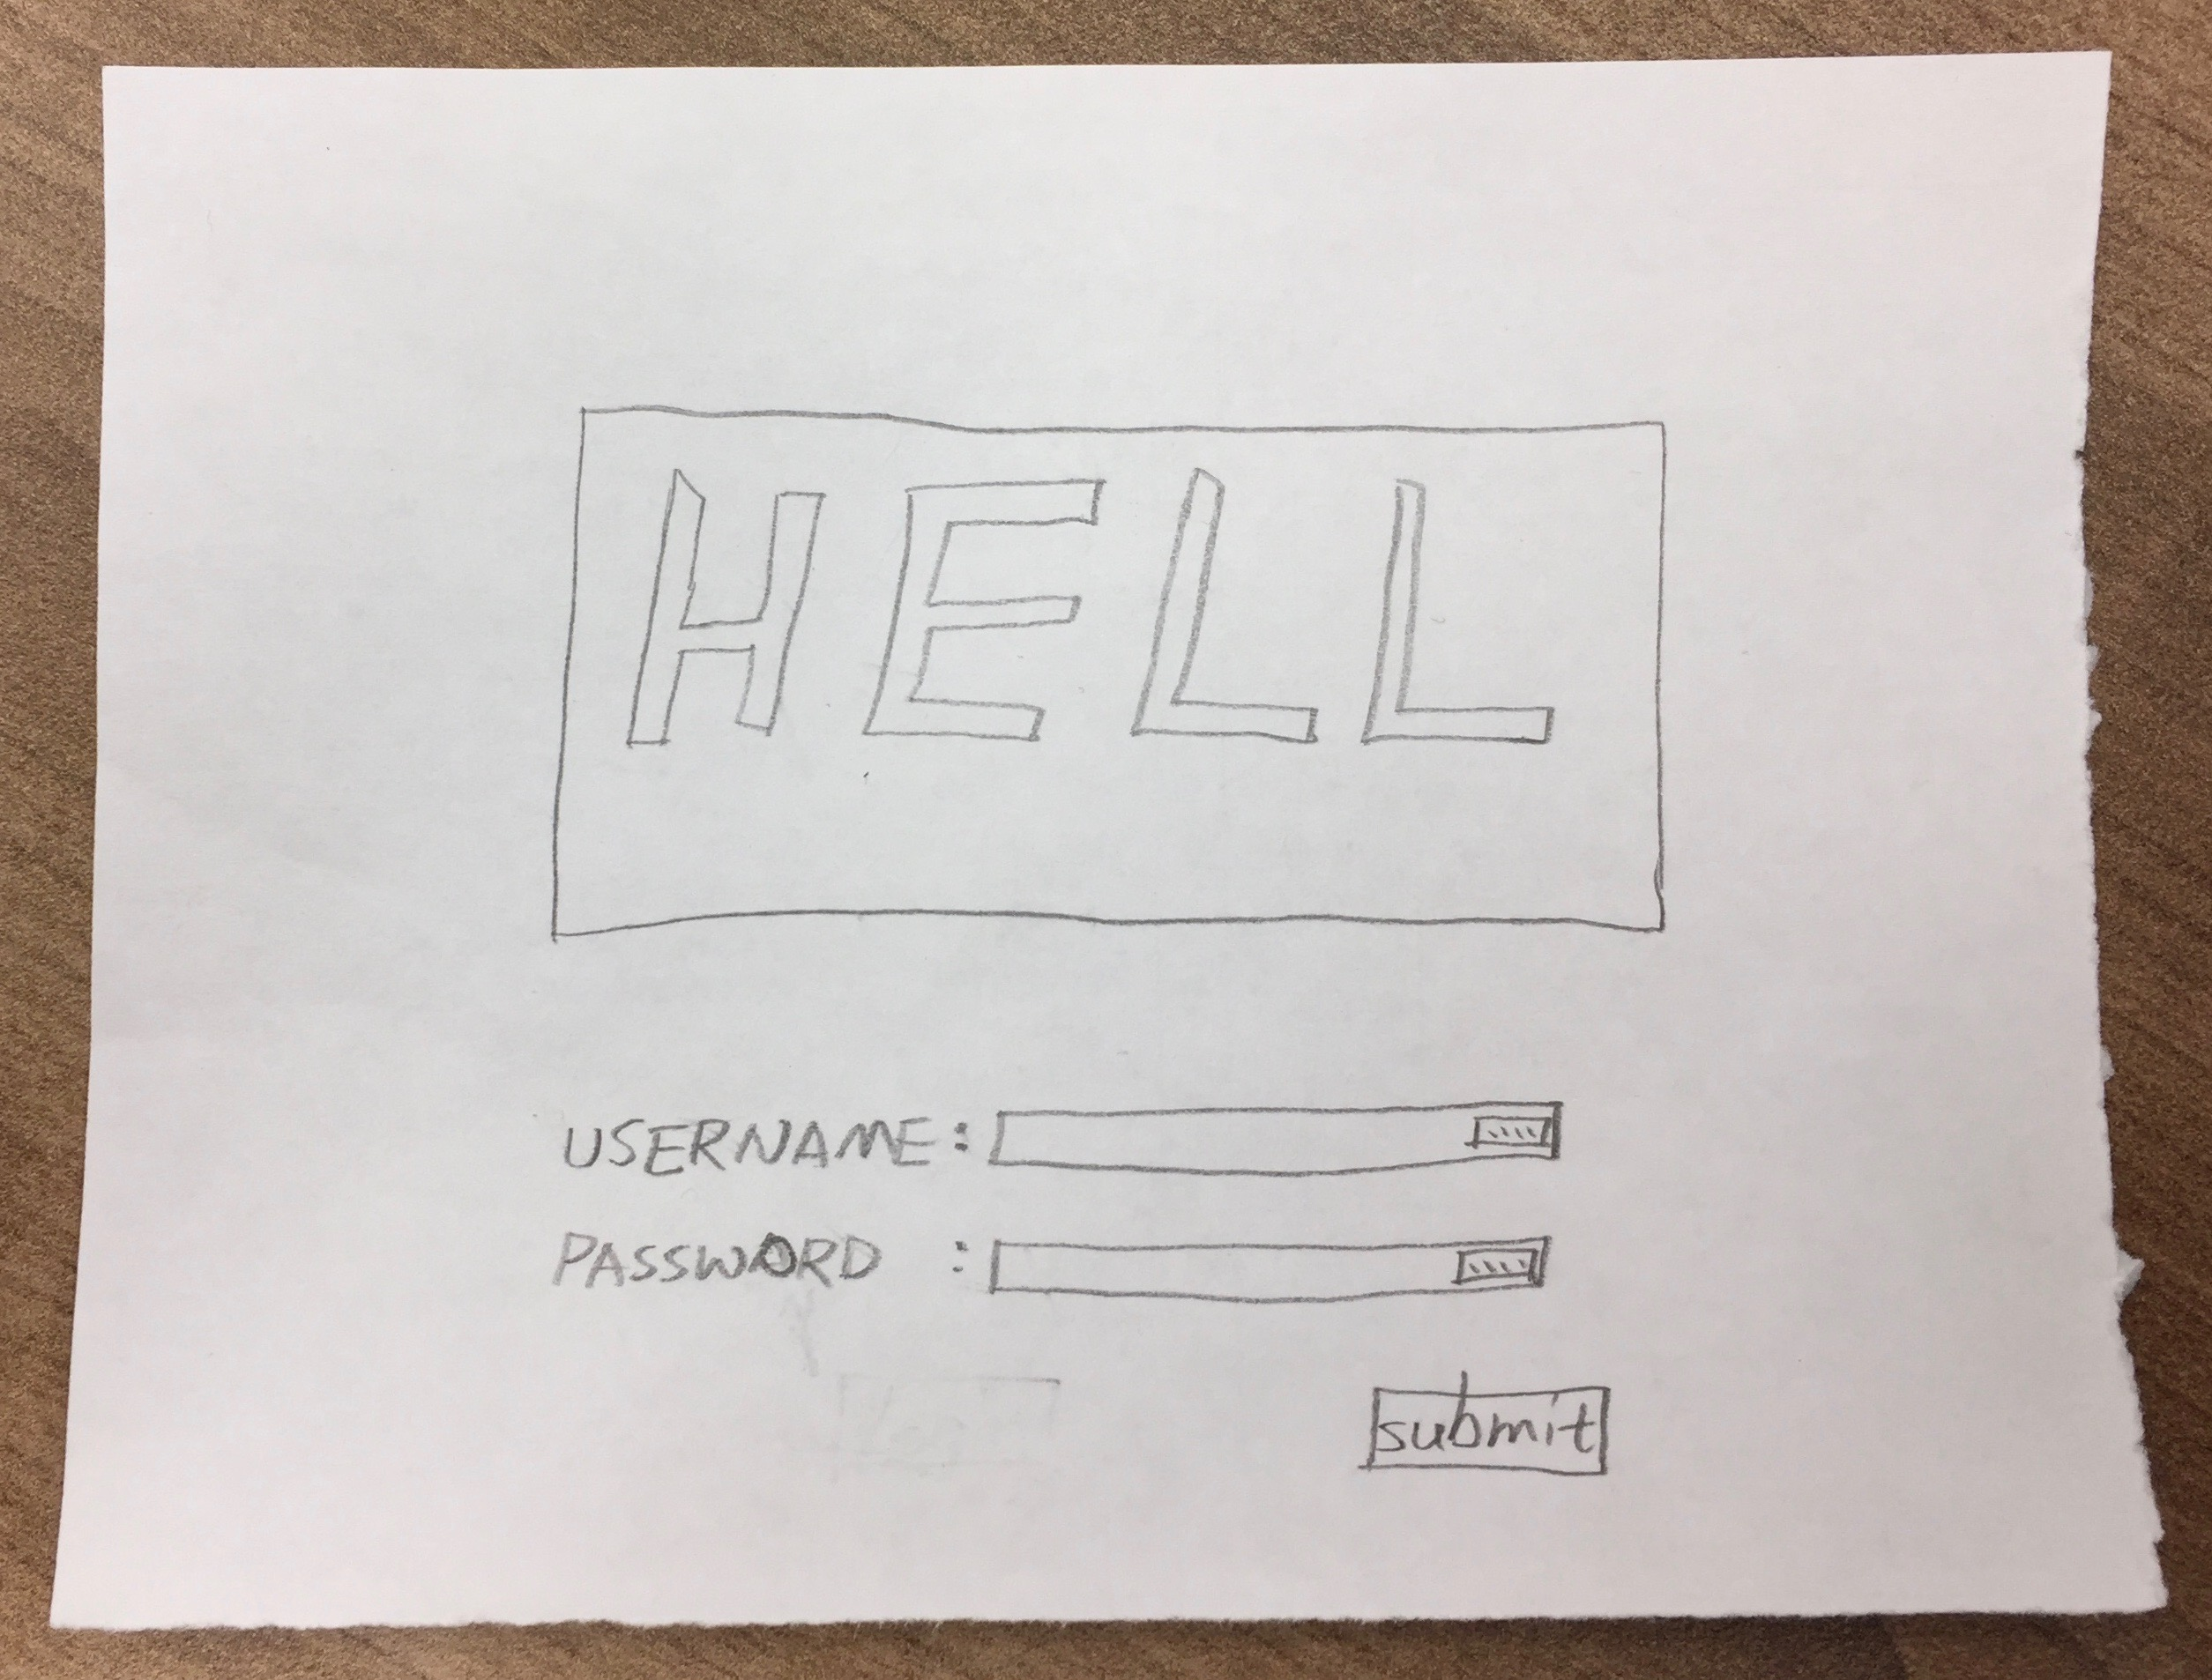 HELL
USERNAME:
PASSWORD :
submit